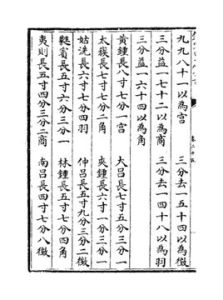 九九八十一以為宮　三分去一五十四以為徵
三分益一七十二以為商　三分去一四十八以為羽
三分益一六十四以為角
黃鍾長八寸七分一宮　大吕長七寸五分三分一
太簇長七寸七分二角　夾鍾長六寸一分三分一
姑洗長六寸七分四羽　仲吕長五寸九分三分二徵
蕤賓長五寸六分三分一　林鍾長五寸七分四角
夷則長五寸四分三分二商　南吕長四寸七分八徵